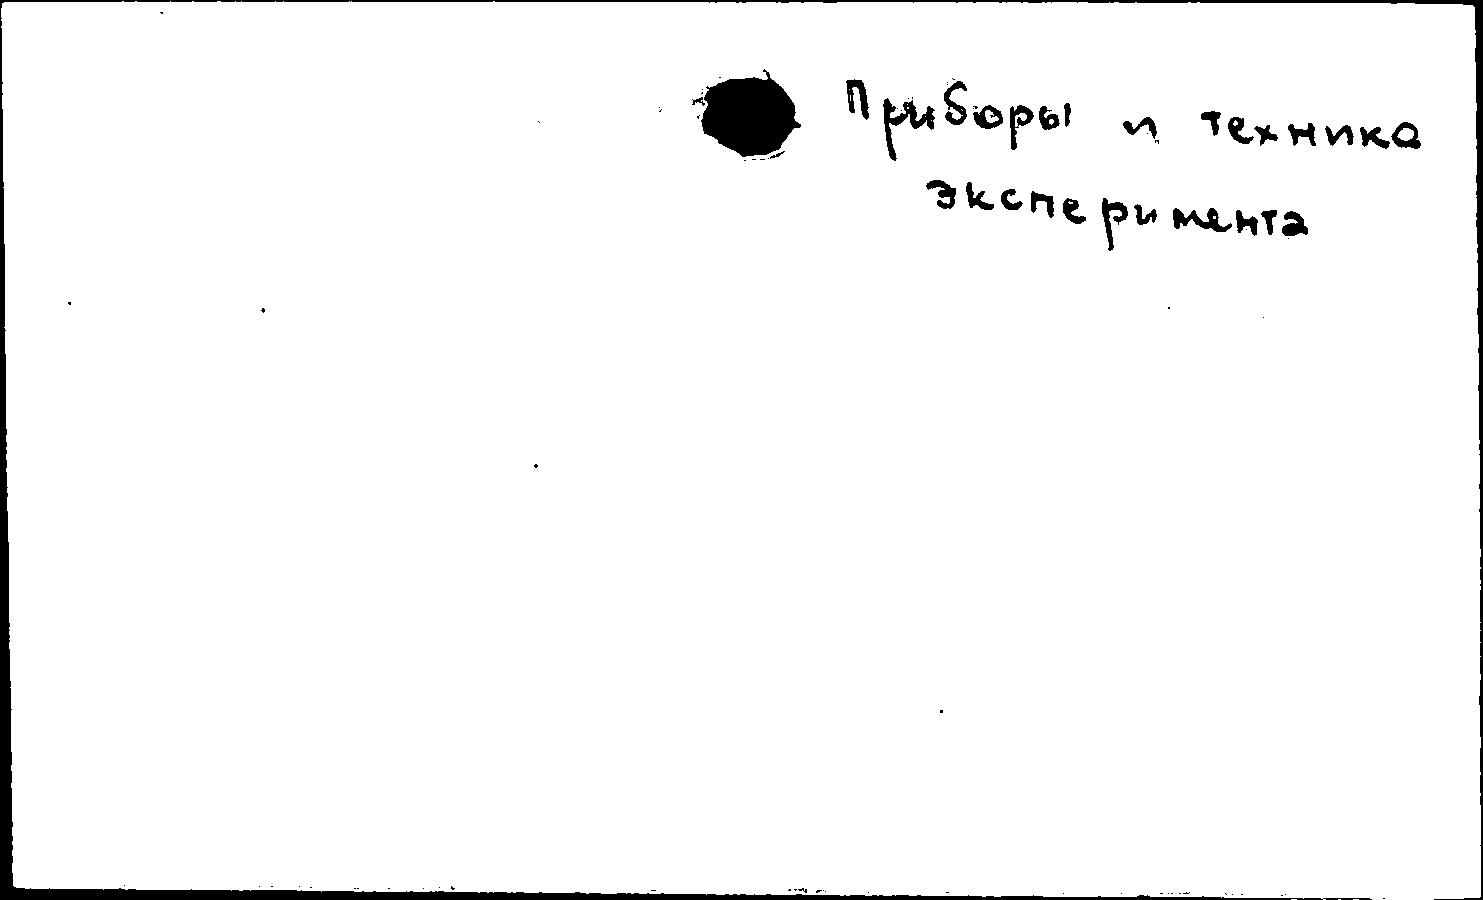 Приборы и техника
эксперимента